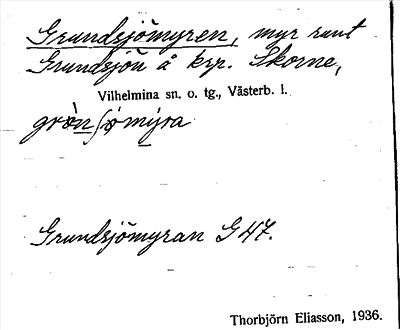 Grundsjömyren, myr runt
Grundsjön å krp. Skorne,
Vilhelmina sn. o. tg., Västerb. l.
Grundsjömyran G 47.
Thorbjörn Eliasson, 1936.